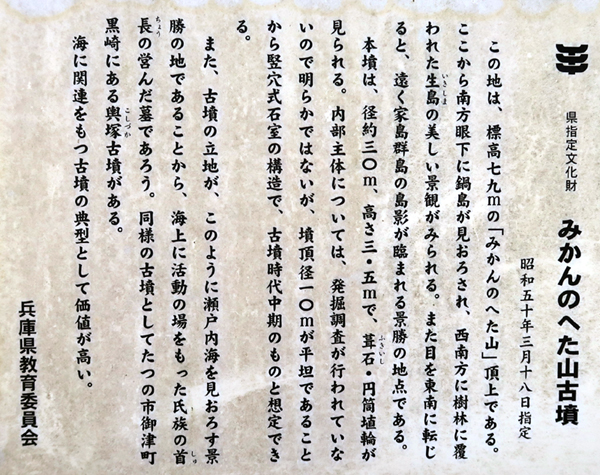 県指定文化財 みかんのへた山古墳
昭和五十年三月十八日指定
この地は、標高七九mの「みかんのへた山」頂上である。
ここから南方眼下に鍋島が見おろされ、西南方に樹林に覆
われた生島の美しい景観がみられる。また目を東南に転じ
ると、遠く家島群島の島影が臨まれる景勝の地点である。
本墳は、径約三〇m、高さ三・五mで、葺石・円筒埴輪が
見られる。内部主体については、発掘調査が行われていな
いので明らかではないが、墳頂径一〇mが平坦であること
から竪穴式石室の構造で、古墳時代中期のものと想定でき
る。
また、古墳の立地が、このように瀬戸内海を見おろす景
勝の地であることから、海上に活動の場をもった氏族の首
長の営んだ墓であろう。同様の古墳としてたつの市御津町
黒崎にある輿塚古墳がある。
海に関連をもつ古墳の典型として価値が高い。
兵庫県教育委員会